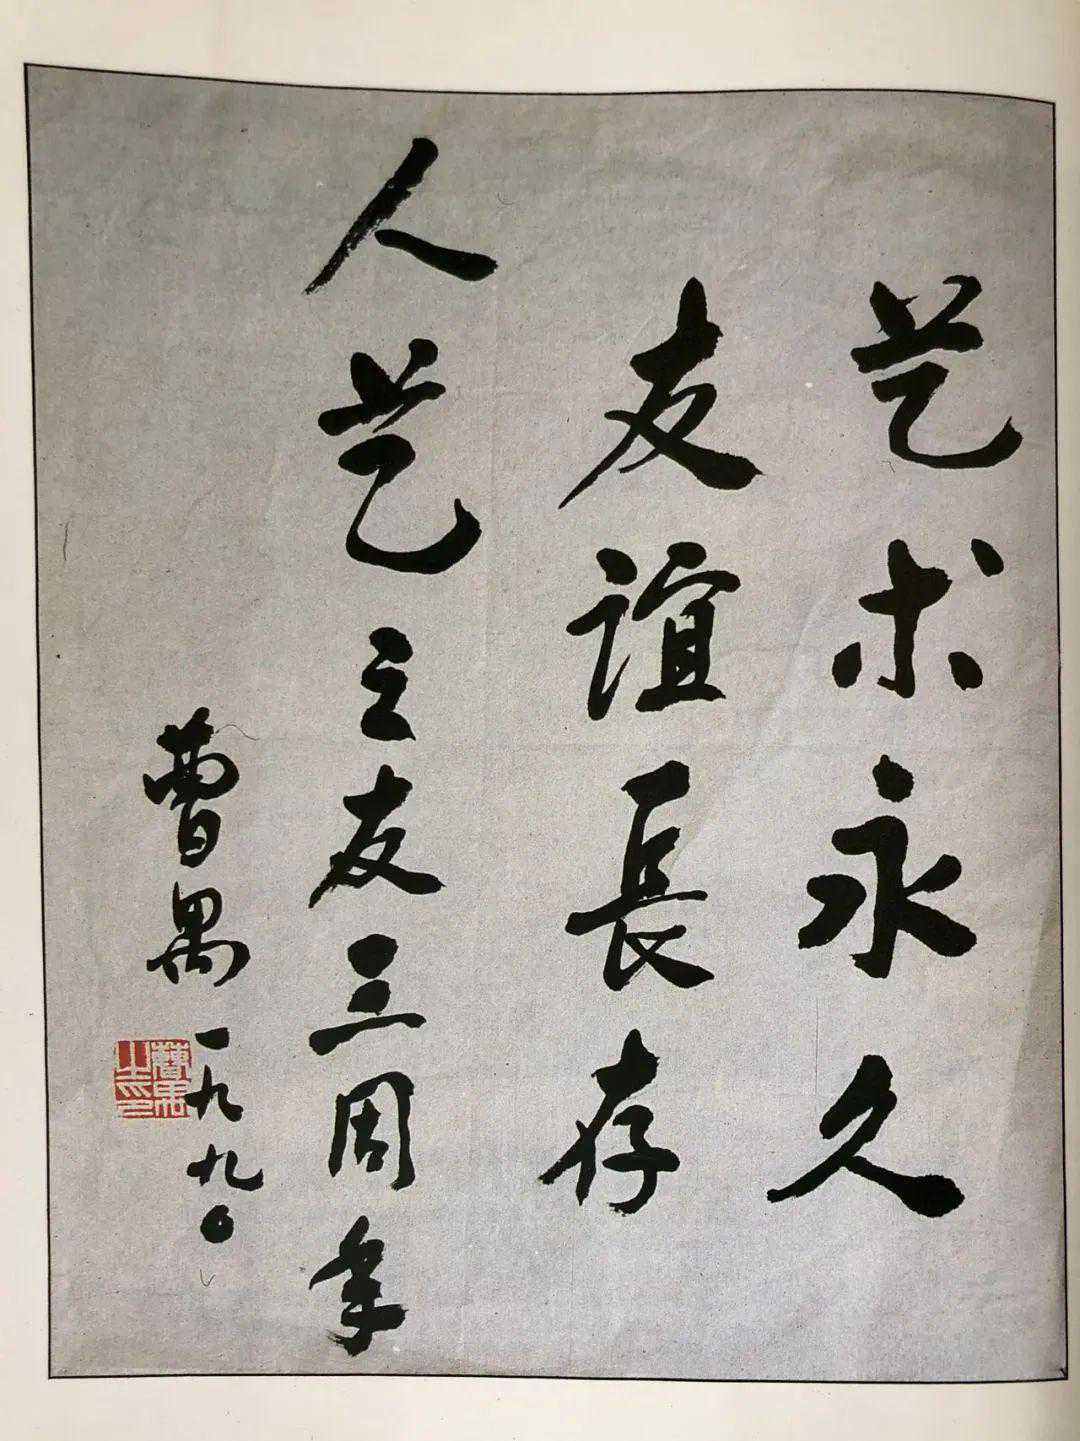 艺术永久
友谊長存
人艺之友三周年
曹禺
一九九〇
曹禺之印